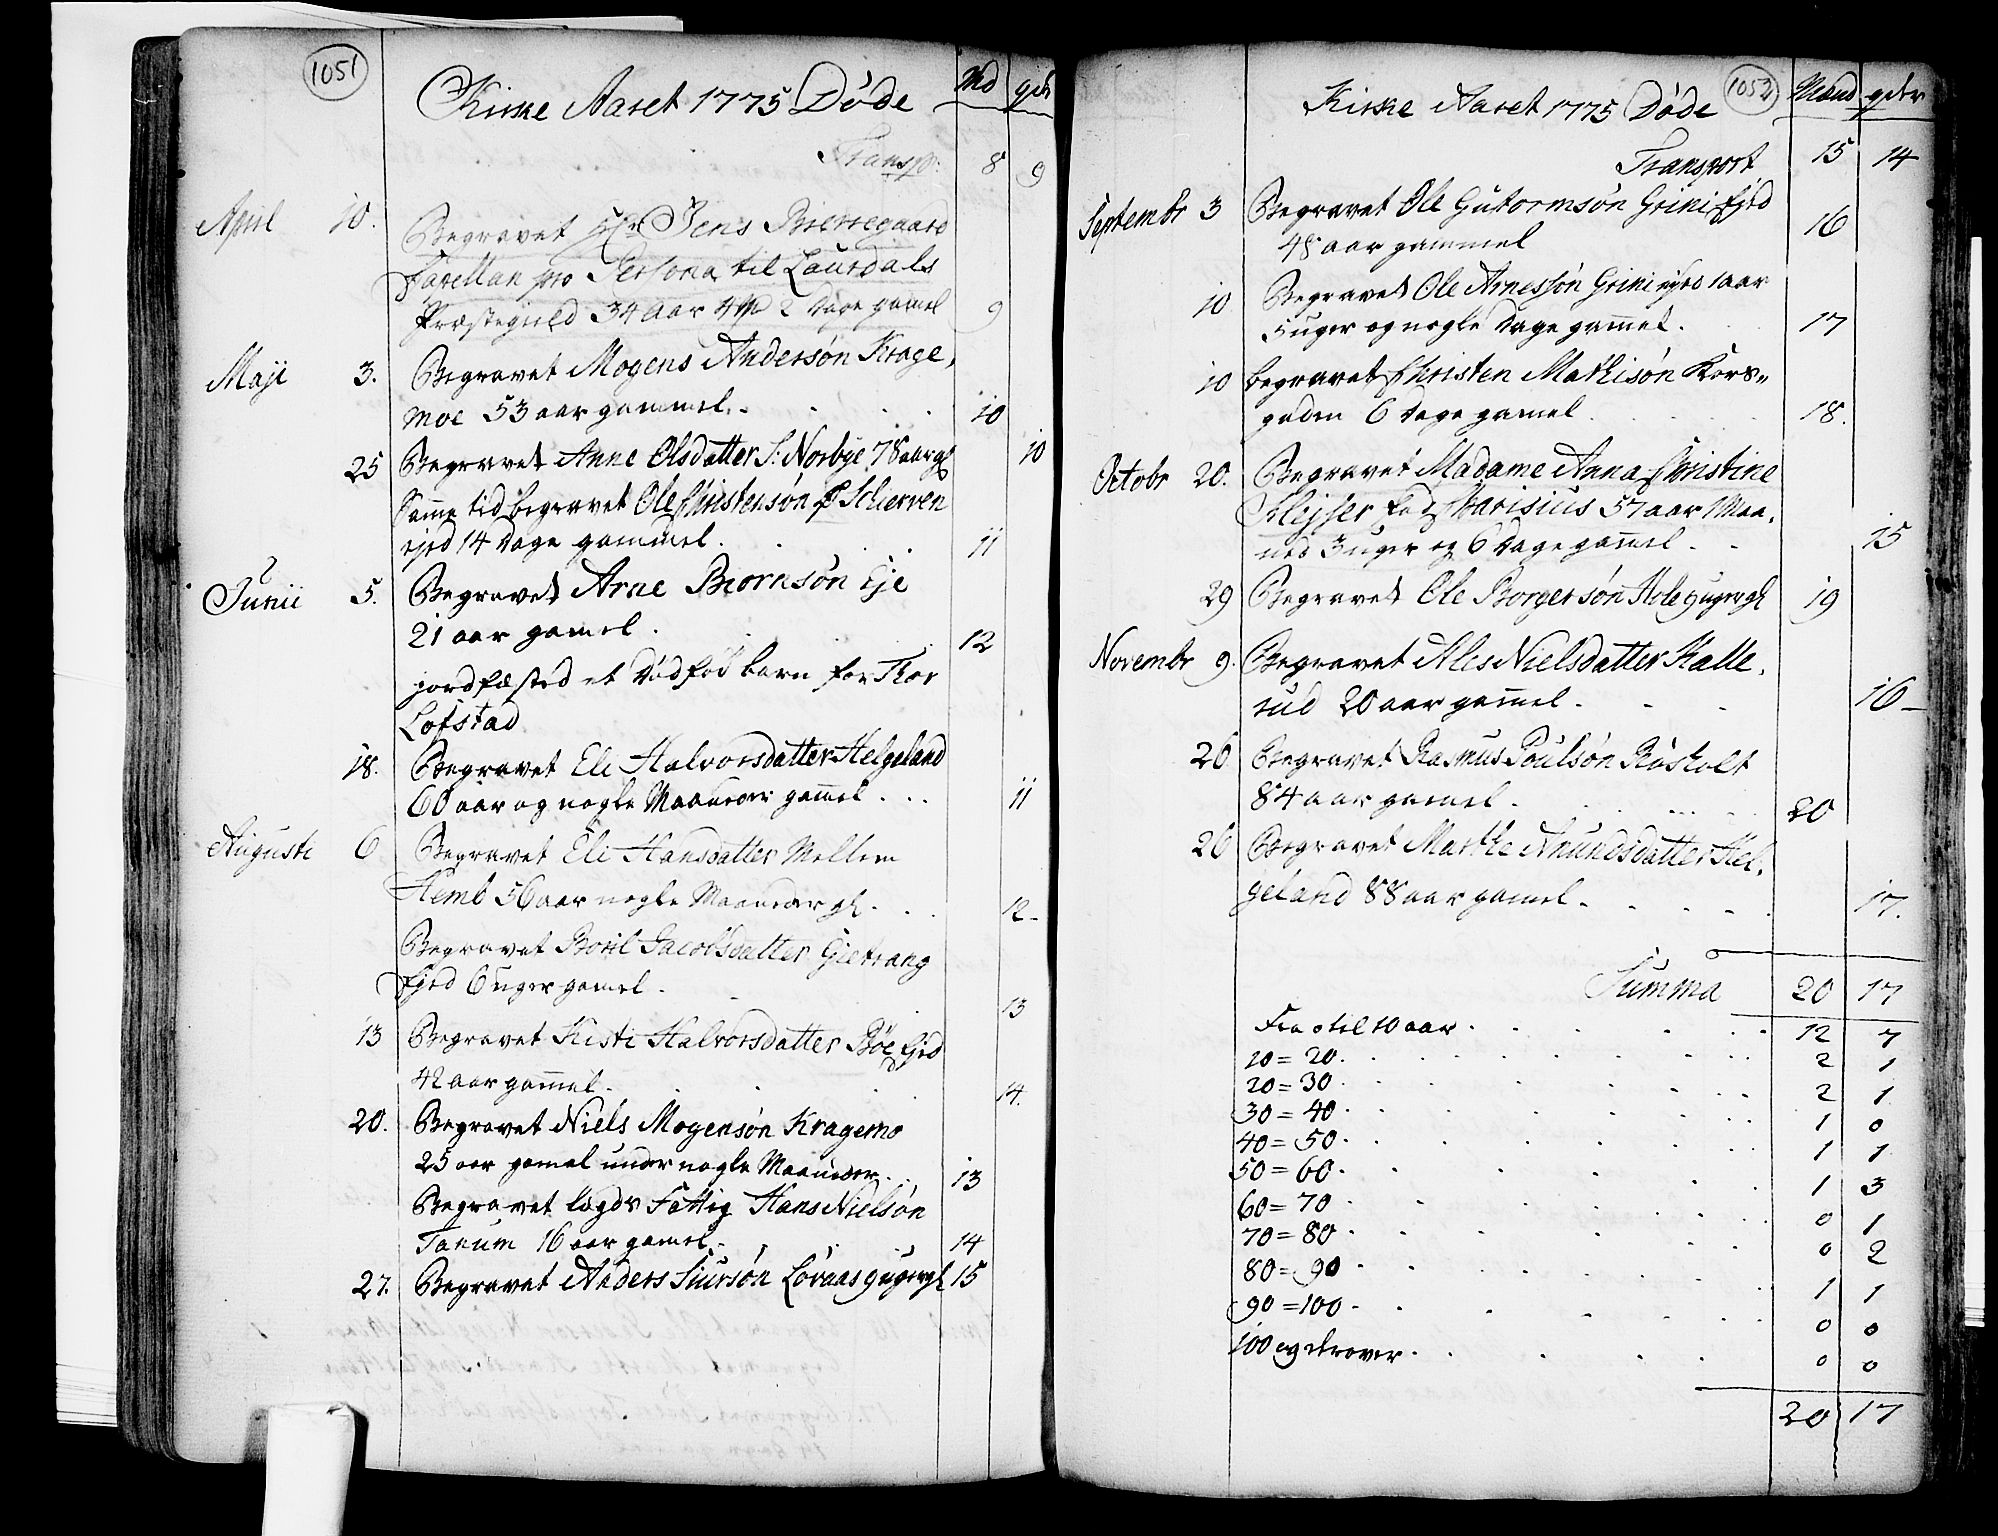 1051
Kirke Aaret 1775 Døde Md qdr
Transp: 8 9
April 10. Begravet Hr. Jens Bierregaard
Capellan pro Persona til Laurdals
Præstegield 34 Aar 4 M 2 Dage gamel 9
Maji 3. Begravet Mogens Andersøn Krage,
moe 53 aar gammel. 10
25 Begravet Anne Olsdatter S: Norbye 78 aar gl 10
Samme tid begravet Ole Christensøn Schierven
ejed 14 Dage gammel. 11
Junii 5. Begravet Arne Biornsøn Eje
21 aar gamel. 12
jordfæsted et Dødfød barn for Thor
Lofstad
18. Begravet Eli Halvorsdatter Helgeland
60 aar og nogle Maaneder gam̅el 11
Augusti 6 Begravet Eli Hansdatter Mellem
Hemb 56 aar nogle Maaneder gl. 12
Begravet Boril Jacobsdatter Gietrang
Ejed 6 uger gamel. 13
13 Begravet Kisti Halvorsdatter Bøe Ejed
42 aar gam̅el. 14.
20. Begravet Niels Mogensøn Kragemo
25 aar gamel under nogle Maaneder. 13
Begravet lægds Fattig Hans Nielsøn
Tanum 16 aar gamel. 14
27. Begravet Anders Siursøn Lovaas 9 uger gl 15
1052
Kirke Aaret 1775 Døde Mænd qdr
Transport 15 14
Septembr 3 Begravet Ole Gutormsøn Grini Ejed
48 aar gammel 16
10 Begravet Ole Arnessøn Grini ejed 1 aar
5 uger og nogle Dage gam̅el. 17
10 begravet Christen Mathisøn Kors=
gaden 6 Dage gamel 18.
Octobr 20. Begravet Madame Anna Christine
Klejser fød Marisius 57 aar 1 Maa,
ned 3 uger og 6 Dage gam̅el 15
29 Begravet Ole Borgersøn Hole 9 uger gl 19
Novembr 9. Begravet Ales Nielsdatter Kalle,
rud 20 aar gam̅el. 16
26 Begravet Rasmus Poulsøn Røsholt
84 aar gamel. 20
26 Begravet Marthe Anundsdatter Hel,
geland 88 aar gamel. 17.
Summa 20 17
Fra 0 til 10 aar 12 7
10 = 20. 2 1
20 = 30 2 1
30 = 40 1 0
40 = 50 1 1
50 = 60 1 3
60 = 70 0 1
70 = 80 0 2
80 = 90 1 1
90 = 100 0 0
100 og derover 0 0
20 17